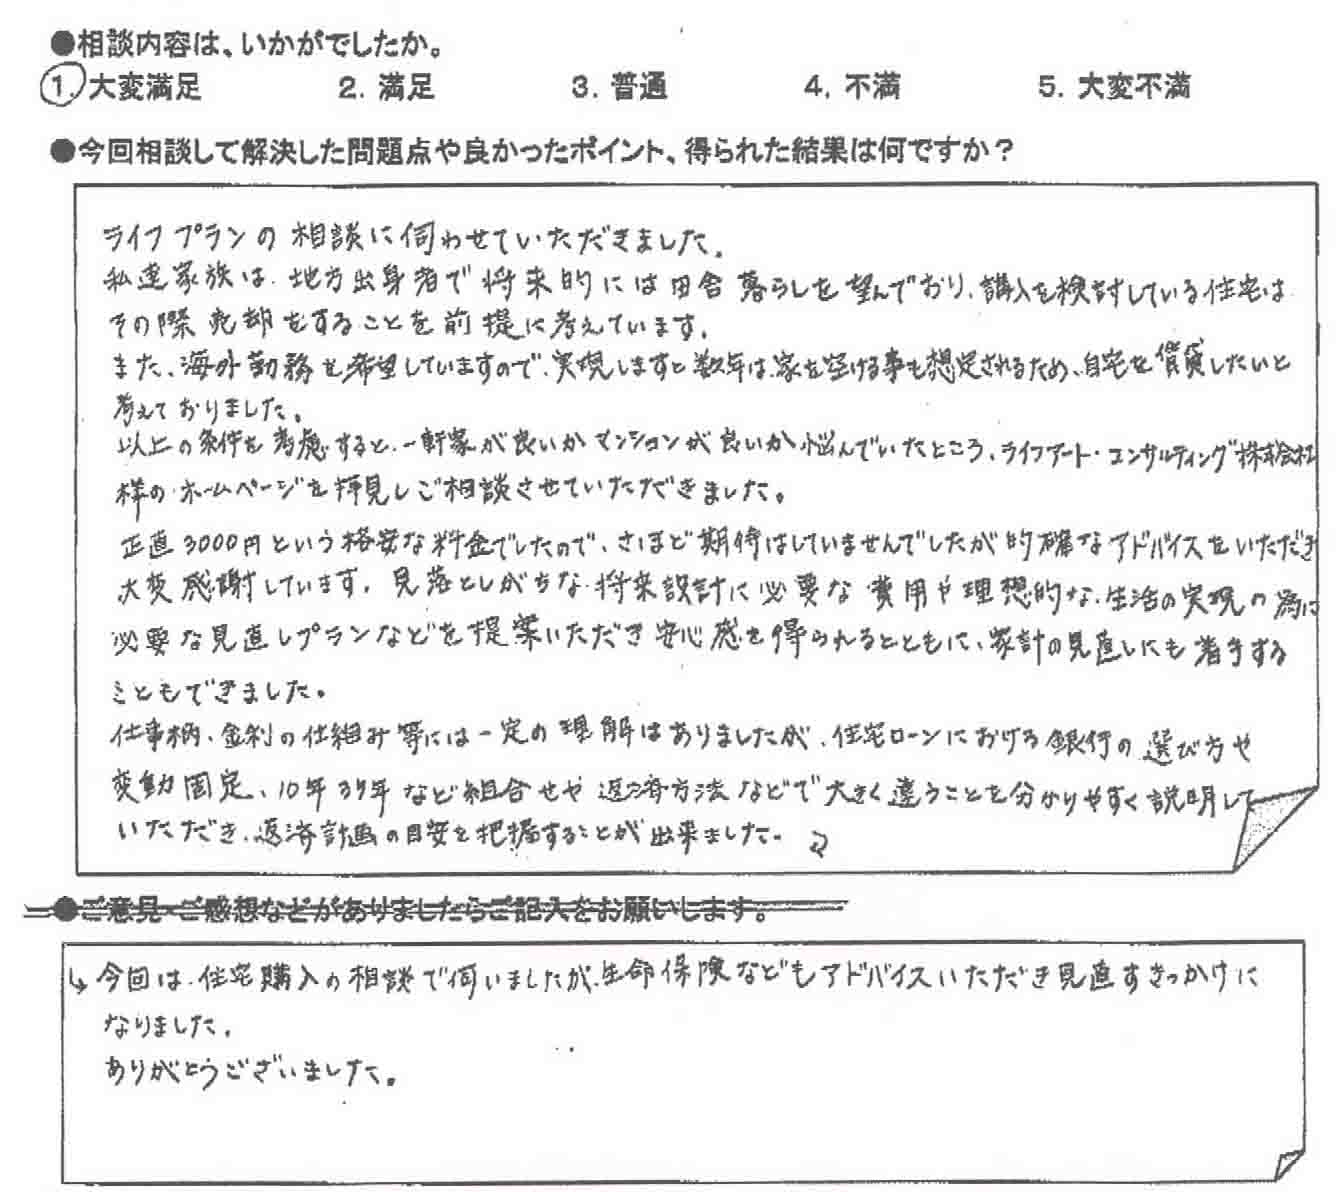 ●相談内容は、いかがでしたか。
1. 大変満足 2. 満足 3. 普通 4. 不満 5. 大変不満
●今回相談して解決した問題点や良かったポイント、得られた結果は何ですか？
ライフプランの相談に伺わせていただきました。
私達家族は、地方出身者で将来的には田舎暮らしを望んでおり、購入を検討している住宅は
その際売却をすることを前提に考えています。
また、海外勤務を希望していますので、実現しますと数年は、家を空ける事も想定されるため、自宅を賃貸したいと
考えておりました。
以上の条件を考慮すると、一軒家が良いかマンションが良いか悩んでいたところ、ライフアート・コンサルティング株式会社
様のホームページを拝見しご相談させていただきました。
正直3000円という格安な料金でしたので、さほど期待はしていませんでしたが的確なアドバイスをいただき
大変感謝しています。見落としがちな将来設計に必要な費用や理想的な、生活の実現の為に
必要な見直しプランなどを提案いただき安心感を得られるとともに、家計の見直しにも着手する
こともできました。
仕事柄、金利の仕組み等には一定の理解はありましたが、住宅ローンにおける銀行の選び方や
変動固定、10年35年など組合せや返済方法などで大きく違うことを分かりやすく説明して
いただき、返済計画の目安を把握することが出来ました。
●ご意見・ご感想などがありましたらご記入をお願いします。
↳ 今回は、住宅購入の相談で伺いましたが、生命保険などもアドバイスいただき見直すきっかけに
なりました。
ありがとうございました。